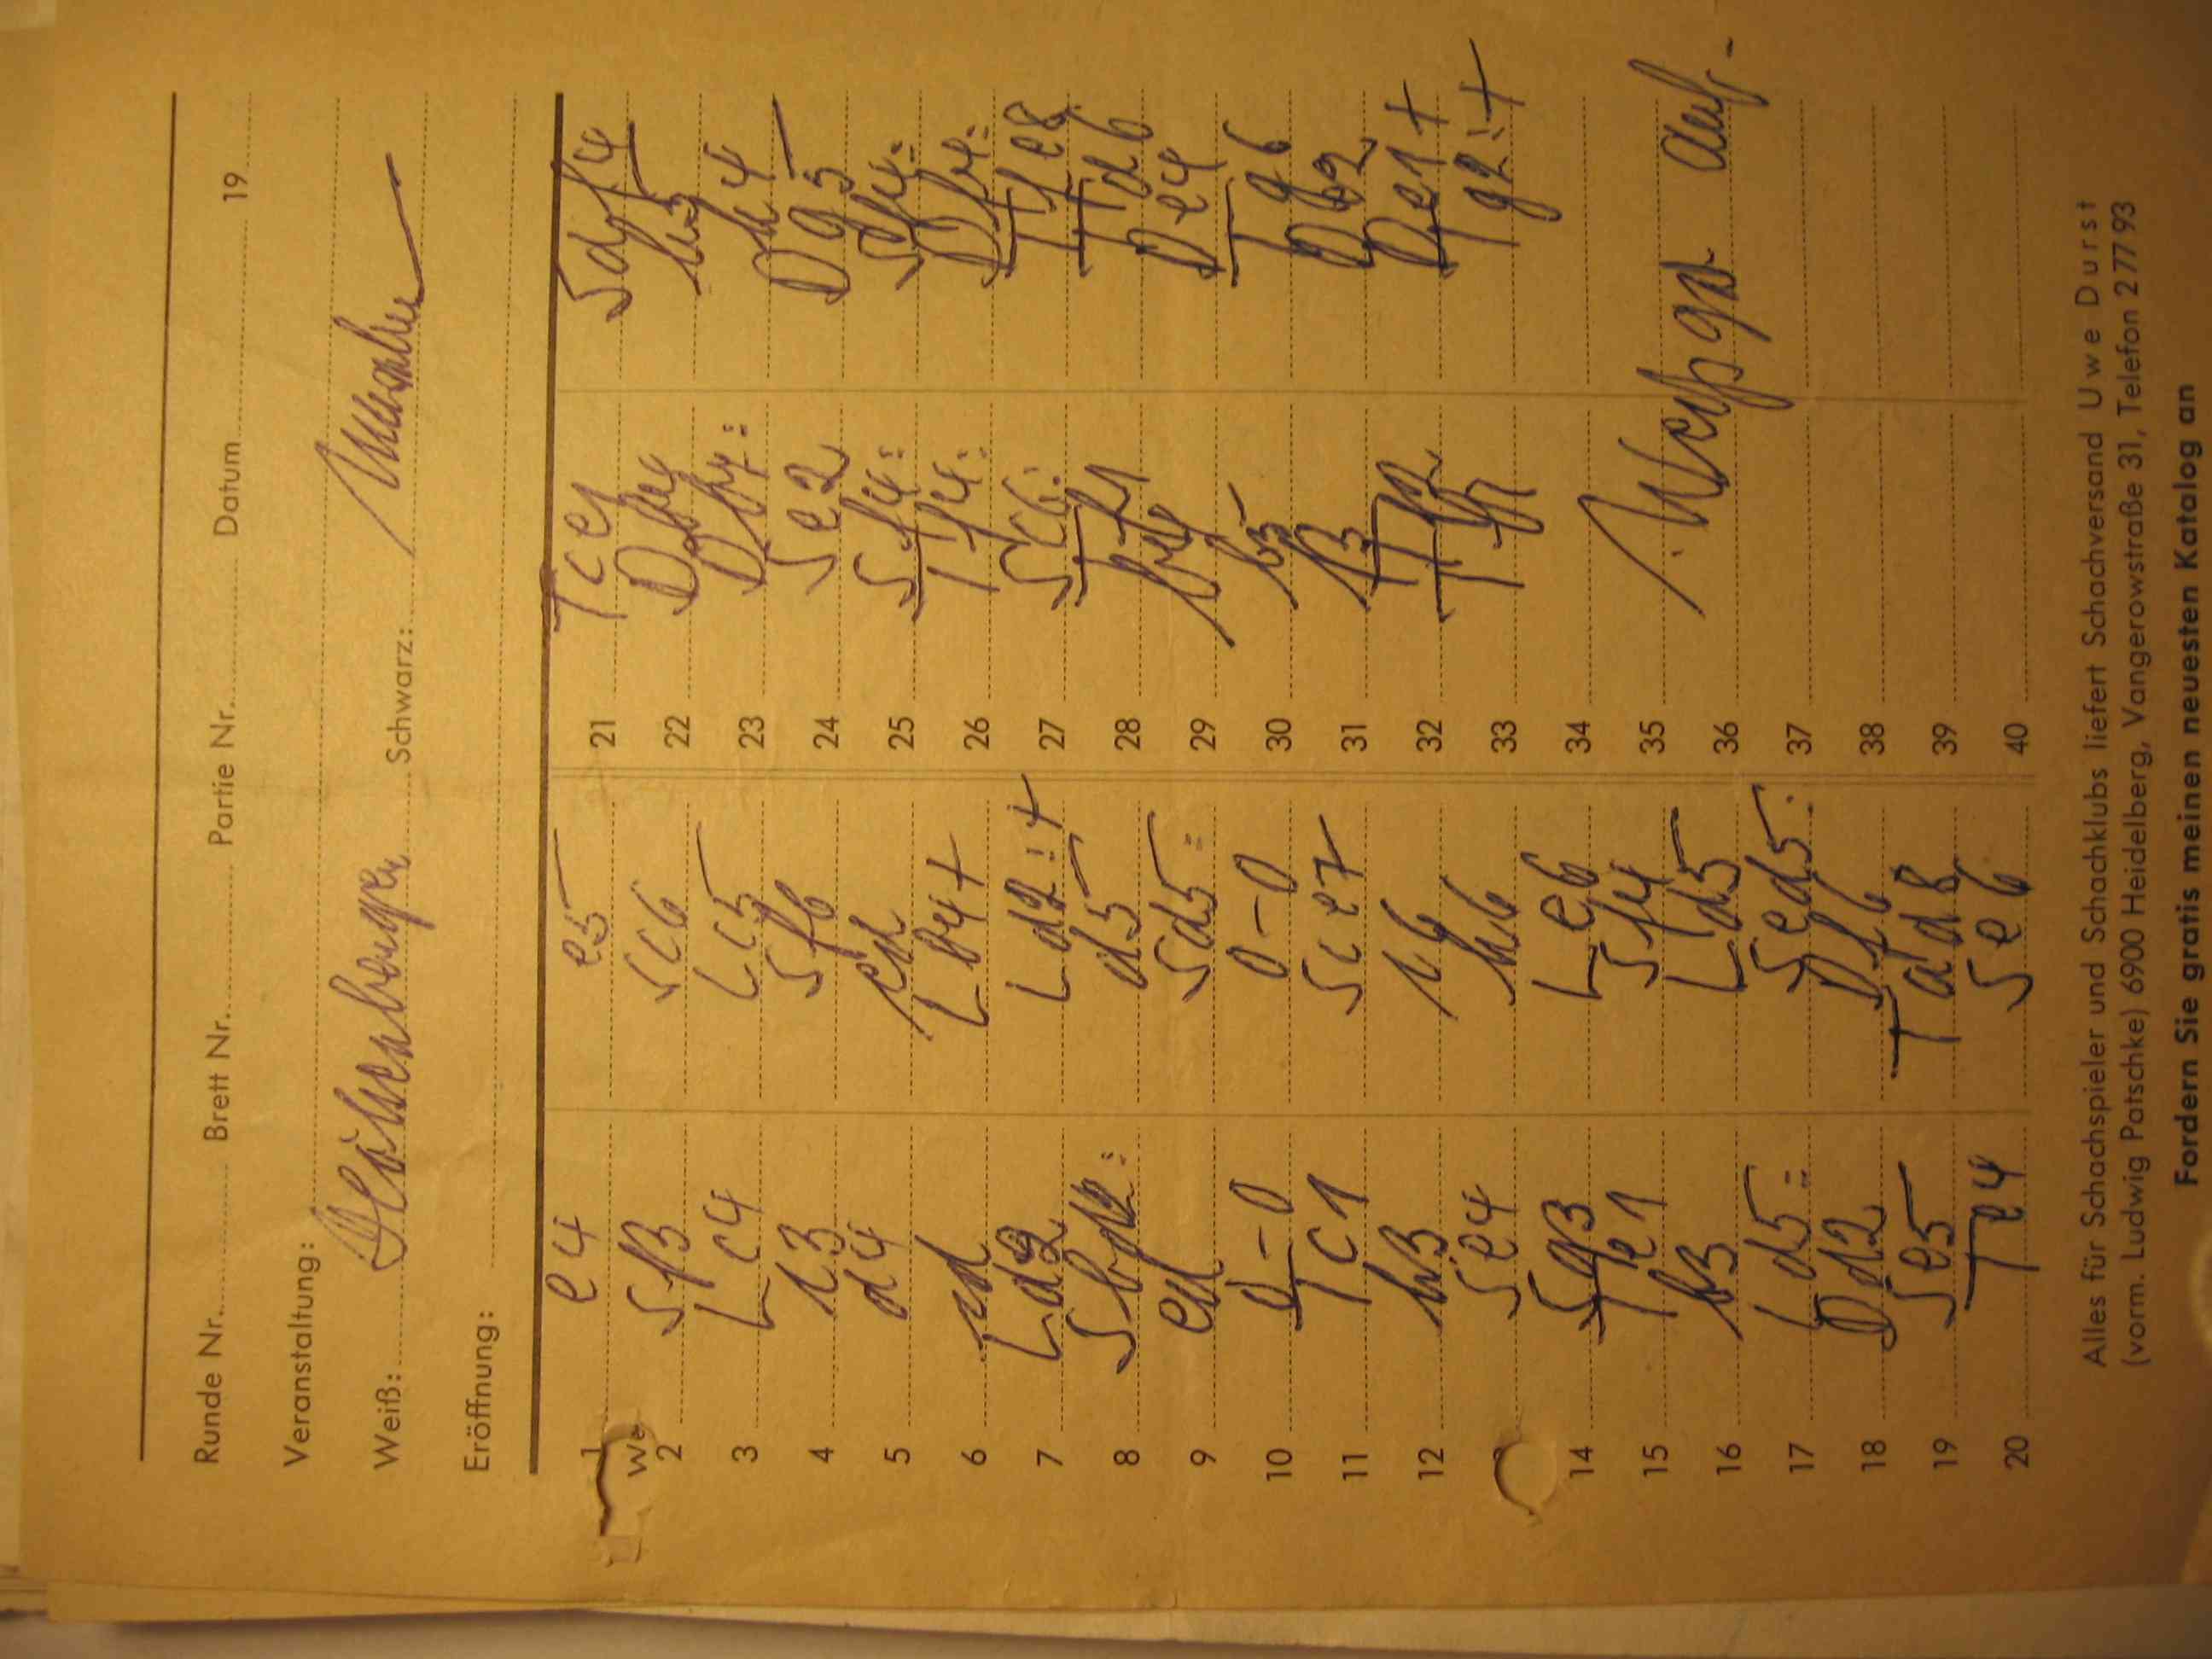 Runde Nr. Brett Nr. Partie Nr. Datum 19
Veranstaltung:
Weiß: Schwarz:
Eröffnung:
1 e4 e5
We
2 Sf3 Sc6
3 Lc4 Lc5
4 c3 Sf6
5 d4 ed
6 cd Lb4+
7 Ld2 Ld2:+
8 Sbd2: d5
9 ed Sd5:
10 0-0 0-0
11 Tc1 Sce7
12 h3 c6
Se4 h6
14 Sg3 Le6
15 Te1 Sf4
16 b3 Ld5
17 Ld5: Sed5:
18 Dd2 Df6
19 Se5 Tad8
20 Te4 Se6
21 Tce1 Sdf4
22 h5
23 Df4: h4
24 Se2 Dg5
25 Sf4: Sf4:
26 Tf4: Df4:
27 Sc6: Tfe8
28 Tf1 Td6
29 b4 De4
30 b5 Tg6
31 f3 Db2
32 Tf2 De1+
33 Tf1 Tg2:+
Weiß gab auf.
34
35
36
37
38
39
40
Alles für Schachspieler und Schachklubs liefert Schachversand Uwe Durst
(vorm. Ludwig Patschke) 6900 Heidelberg, Vangerowstraße 31, Telefon 2 77 93
Fordern Sie gratis meinen neuesten Katalog an